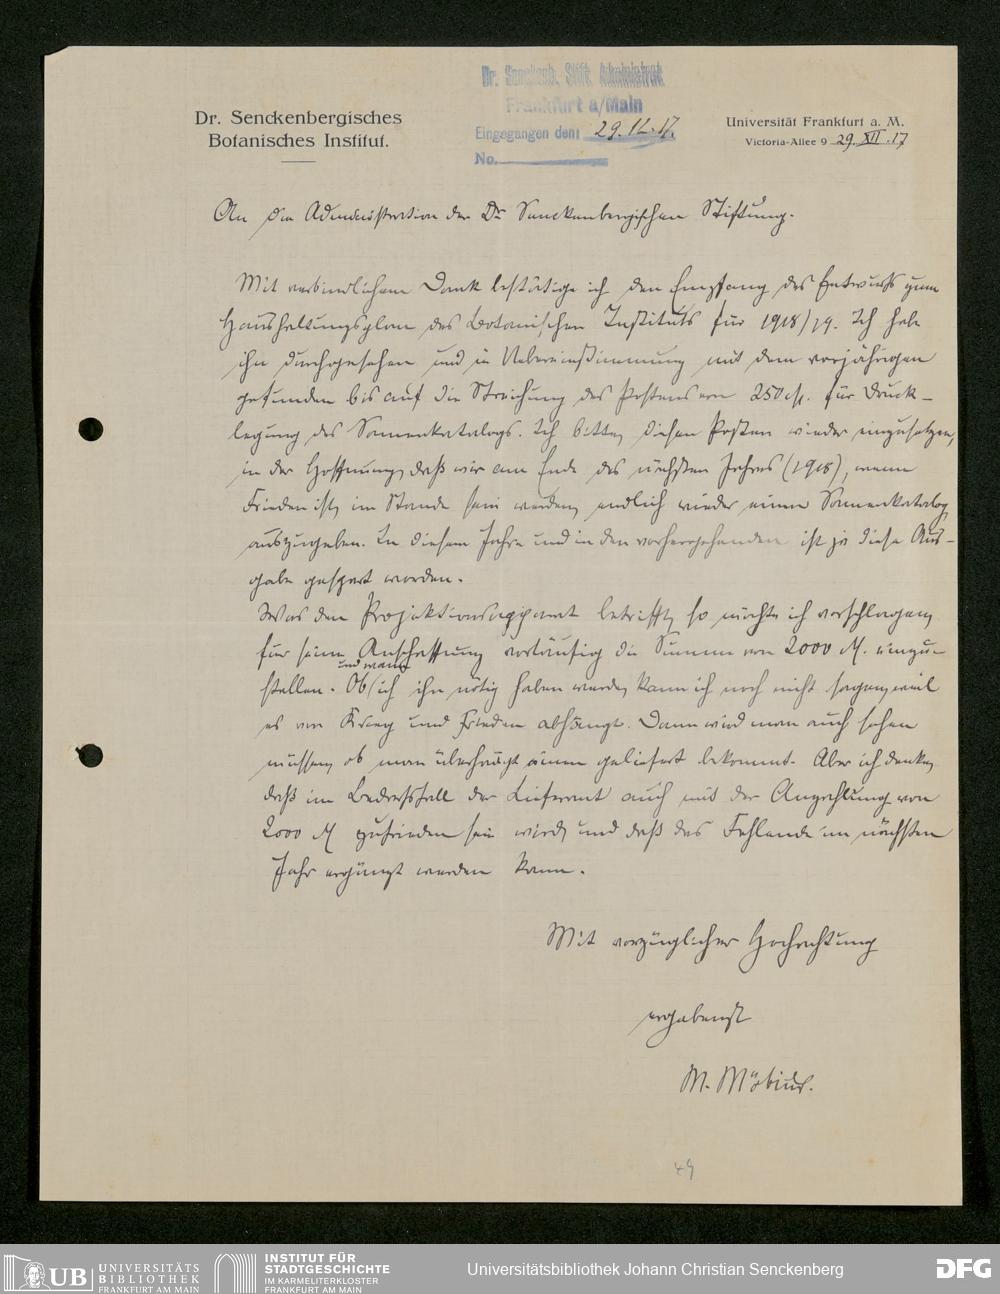 Dr. Senckenb. Stift. Administrat.
Frankfurt a/Main
Eingegangen den: 29.12.17.
No.
Dr. Senckenbergisches
Botanisches Institut.
Universität Frankfurt a. M.
Victoria-Allee 9 29. XII. 17
An die Administration der Dr. Senckenbergischen Stiftung.
Mit verbindlichem Dank bestätige ich den Empfang des Entwurfs zum
Haushaltungsplan des Botanischen Instituts für 1918/19. Ich habe
ihn durchgesehen und in Uebereinstimmung mit dem vorjährigen
gefunden bis auf die Streichung des Postens von 250 M. für Druck-
legung des Samenkatalogs. Ich bitte, diesen Posten wieder einzusetzen,
in der Hoffnung, daß wir am Ende des nächsten Jahres (1918), wenn
Frieden ist, im Stande sein werden, endlich wieder einen Samenkatalog
auszugeben. In diesem Jahre und in den vorhergehenden ist ja diese Aus-
gabe gespart worden.
Was den Projektionsapparat betrifft, so möchte ich vorschlagen,
für seine Anschaffung vorläufig die Summe von 2000 M. einzu-
stellen. Ob und wann ich ihn nötig haben werde, kann ich noch nicht sagen, weil
es von Krieg und Frieden abhängt. Dann wird man auch sehen
müssen, ob man überhaupt einen geliefert bekommt. Aber ich denke,
daß im Bedarfsfall der Lieferant auch mit der Anzahlung von
2000 M zufrieden sein wird, und daß das Fehlende im nächsten
Jahr ergänzt werden kann.
Mit vorzüglicher Hochachtung
ergebenst
M. Möbius.
49
UB UNIVERSITÄTS
BIBLIOTHEK
FRANKFURT AM MAIN
INSTITUT FÜR
STADTGESCHICHTE
IM KARMELITERKLOSTER
FRANKFURT AM MAIN
Universitätsbibliothek Johann Christian Senckenberg
DFG